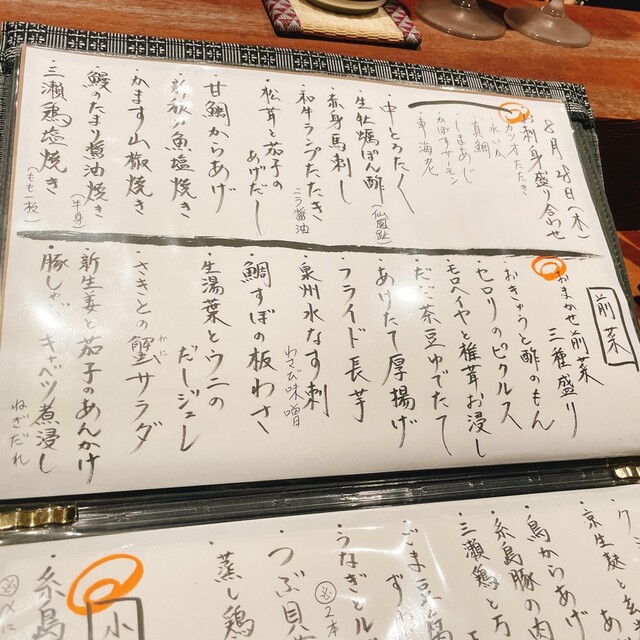 8月28日(木)
お刺身盛り合わせ
・カツオたたき
・水いか
・真鯛
・しまあじ
・かぼすサーモン
・車海老
・中とろたく
・生牡蠣ぽん酢
(仙鳳趾)
・赤身馬刺し
・和牛ランプたたき
ニラ醤油
・松茸と茄子の
あげだし
・甘鯛からあげ
・新秋刀魚塩焼き
・かます山椒焼き
・鰻のたまり醤油焼き
(半身)
・三瀬鶏塩焼き
(もも一枚)
前菜
おまかせ前菜
三種盛り
・おきゅうと酢のもん
・セロリのピクルス
・モロヘイヤと椎茸お浸し
・だだ茶豆ゆでたて
・あげたて厚揚げ
・フライド長芋
・泉州水なす刺
わさび味噌
・鯛すぼの板わさ
・生湯葉とウニの
だしジュレ
・さきとの蟹サラダ
かに
・新生姜と茄子のあんかけ
・豚しゃぶキャベツ煮浸し
ねぎだれ
・京生麩と
・鳥からあげ
・糸島豚の内
・三瀬鶏と
・ごま豆腐
・うなぎとル
※2本
・つぶ貝
・蒸し鶏
小
・糸島